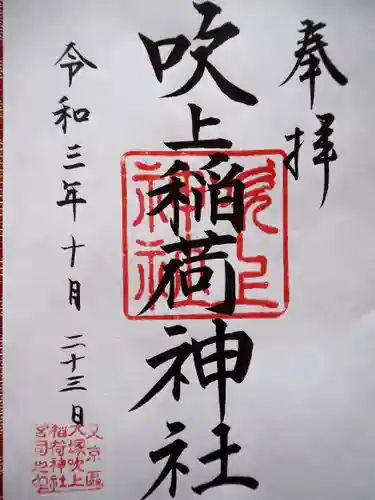 奉拝
吹上稲荷神社
令和三年十月二十三日
吹上
神社
文京區
大塚吹上
稲荷神社